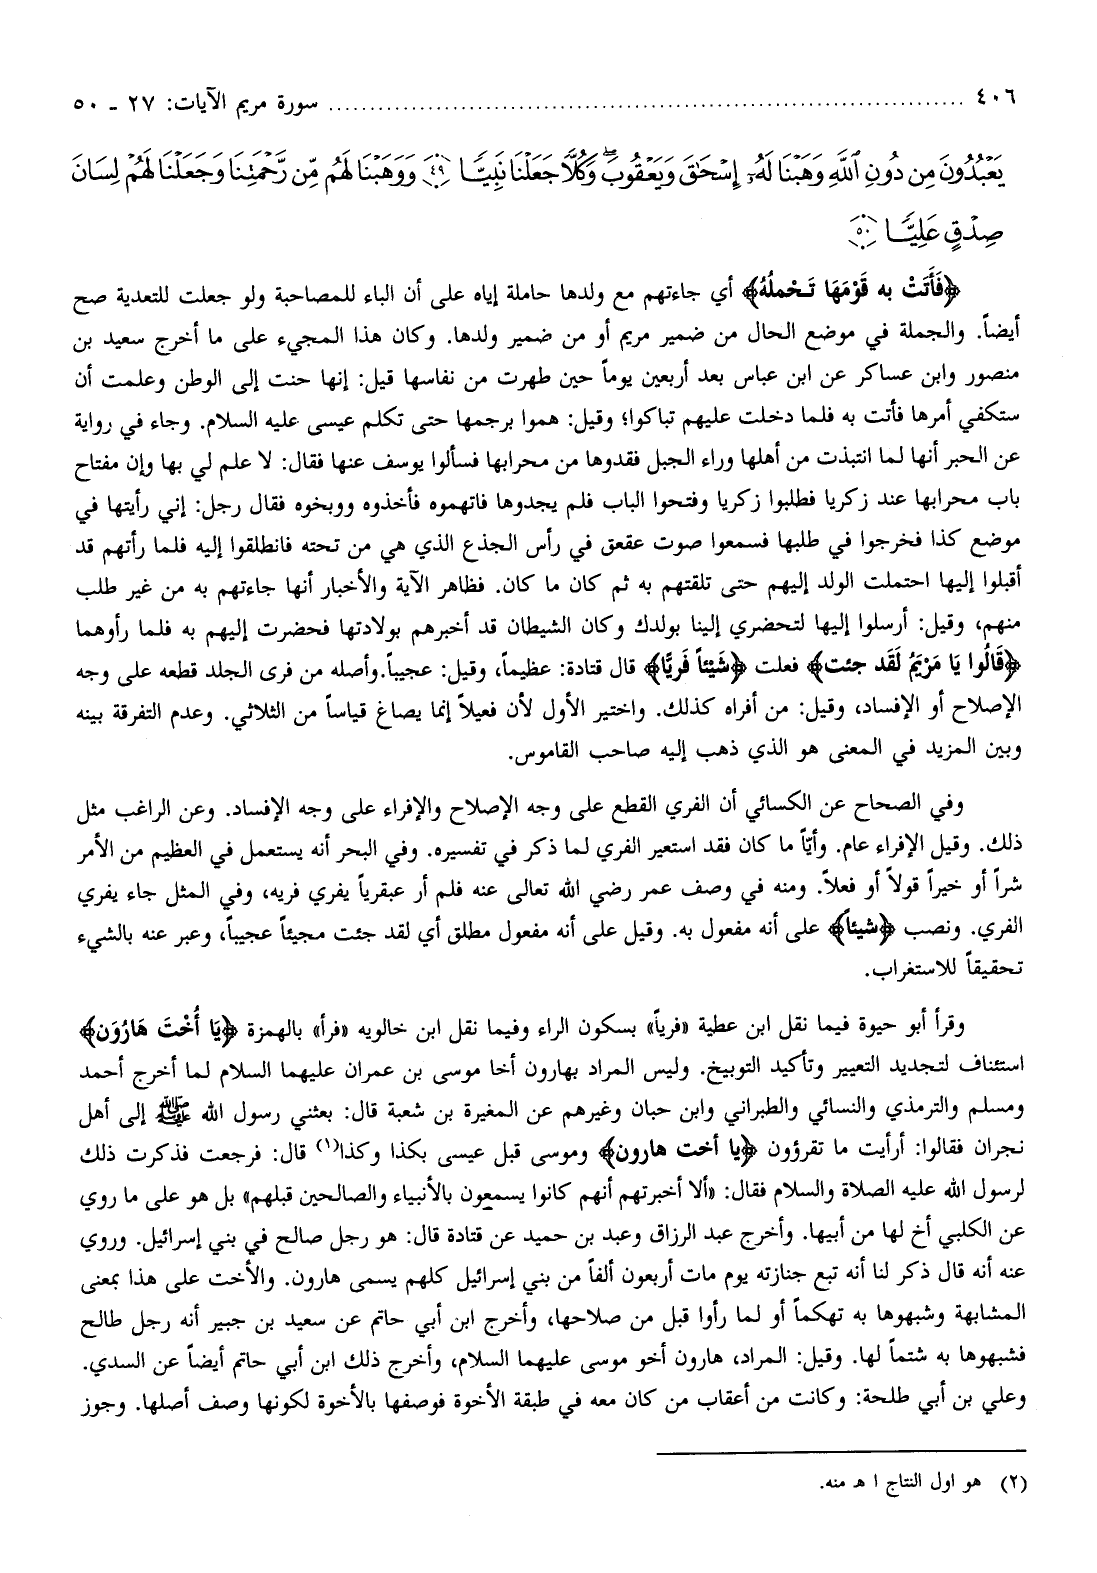 ٤٠٦ ........................................ سورة مريم الآيات: ٢٧ ـ ٥٠
يَعْبُدُونَ مِن دُونِ ٱللَّهِ وَهَبْنَا لَهُۥٓ إِسْحَٰقَ وَيَعْقُوبَ ۖ وَكُلًّا جَعَلْنَا نَبِيًّا ﴿٤٩﴾ وَوَهَبْنَا لَهُم مِّن رَّحْمَتِنَا وَجَعَلْنَا لَهُمْ لِسَانَ
صِدْقٍ عَلِيًّا ﴿٥٠﴾
﴿فَأَتَتْ به قَوْمَهَا تَحْملُهُ﴾ أي جاءتهم مع ولدها حاملة إياه على أن الباء للمصاحبة ولو جعلت للتعدية صح
أيضاً. والجملة في موضع الحال من ضمير مريم أو من ضمير ولدها. وكان هذا المجيء على ما أخرج سعيد بن
منصور وابن عساكر عن ابن عباس بعد أربعين يوماً حين طهرت من نفاسها قيل: إنها حنت إلى الوطن وعلمت أن
ستكفي أمرها فأتت به فلما دخلت عليهم تباكوا؛ وقيل: هموا برجمها حتى تكلم عيسى عليه السلام. وجاء في رواية
عن الحبر أنها لما انتبذت من أهلها وراء الجبل فقدوها من محرابها فسألوا يوسف عنها فقال: لا علم لي بها وإن مفتاح
باب محرابها عند زكريا فطلبوا زكريا وفتحوا الباب فلم يجدوها فاتهموه فأخذوه ووبخوه فقال رجل: إني رأيتها في
موضع كذا فخرجوا في طلبها فسمعوا صوت عقعق في رأس الجذع الذي هي من تحته فانطلقوا إليه فلما رأتهم قد
أقبلوا إليها احتملت الولد إليهم حتى تلقتهم به ثم كان ما كان. فظاهر الآية والأخبار أنها جاءتهم به من غير طلب
منهم، وقيل: أرسلوا إليها لتحضري إلينا بولدك وكان الشيطان قد أخبرهم بولادتها فحضرت إليهم به فلما رأوهما
﴿قَالُوا يَا مَرْيَمُ لَقَد جئت﴾ فعلت ﴿شَيْئاً فَريًّا﴾ قال قتادة: عظيماً، وقيل: عجيباً.وأصله من فرى الجلد قطعه على وجه
الإصلاح أو الإفساد، وقيل: من أفراه كذلك. واختير الأول لأن فعيلاً إنما يصاغ قياساً من الثلاثي. وعدم التفرقة بينه
وبين المزيد في المعنى هو الذي ذهب إليه صاحب القاموس.
وفي الصحاح عن الكسائي أن الفري القطع على وجه الإصلاح والإفراء على وجه الإفساد. وعن الراغب مثل
ذلك. وقيل الإفراء عام. وأيّاً ما كان فقد استعير الفري لما ذكر في تفسيره. وفي البحر أنه يستعمل في العظيم من الأمر
شراً أو خيراً قولاً أو فعلاً. ومنه في وصف عمر رضي الله تعالى عنه فلم أر عبقرياً يفري فريه، وفي المثل جاء يفري
الفري. ونصب ﴿شيئاً﴾ على أنه مفعول به. وقيل على أنه مفعول مطلق أي لقد جئت مجيئاً عجيباً، وعبر عنه بالشيء
تحقيقاً للاستغراب.
وقرأ أبو حيوة فيما نقل ابن عطية «فرياً» بسكون الراء وفيما نقل ابن خالويه «فرأ» بالهمزة ﴿يَا أُخْتَ هَارُوَن﴾
استئناف لتجديد التعيير وتأكيد التوبيخ. وليس المراد بهارون أخا موسى بن عمران عليهما السلام لما أخرج أحمد
ومسلم والترمذي والنسائي والطبراني وابن حبان وغيرهم عن المغيرة بن شعبة قال: بعثني رسول الله ﷺ إلى أهل
نجران فقالوا: أرأيت ما تقرؤون ﴿يا أخت هارون﴾ وموسى قبل عيسى بكذا وكذا(١) قال: فرجعت فذكرت ذلك
لرسول الله عليه الصلاة والسلام فقال: «ألا أخبرتهم أنهم كانوا يسمعون بالأنبياء والصالحين قبلهم» بل هو على ما روي
عن الكلبي أخ لها من أبيها. وأخرج عبد الرزاق وعبد بن حميد عن قتادة قال: هو رجل صالح في بني إسرائيل. وروي
عنه أنه قال ذكر لنا أنه تبع جنازته يوم مات أربعون ألفاً من بني إسرائيل كلهم يسمى هارون. والأخت على هذا بمعنى
المشابهة وشبهوها به تهكماً أو لما رأوا قبل من صلاحها، وأخرج ابن أبي حاتم عن سعيد بن جبير أنه رجل طالح
فشبهوها به شتماً لها. وقيل: المراد، هارون أخو موسى عليهما السلام، وأخرج ذلك ابن أبي حاتم أيضاً عن السدي.
وعلي بن أبي طلحة: وكانت من أعقاب من كان معه في طبقة الأخوة فوصفها بالأخوة لكونها وصف أصلها. وجوز
(٢) هو اول النتاج ا هـ منه.